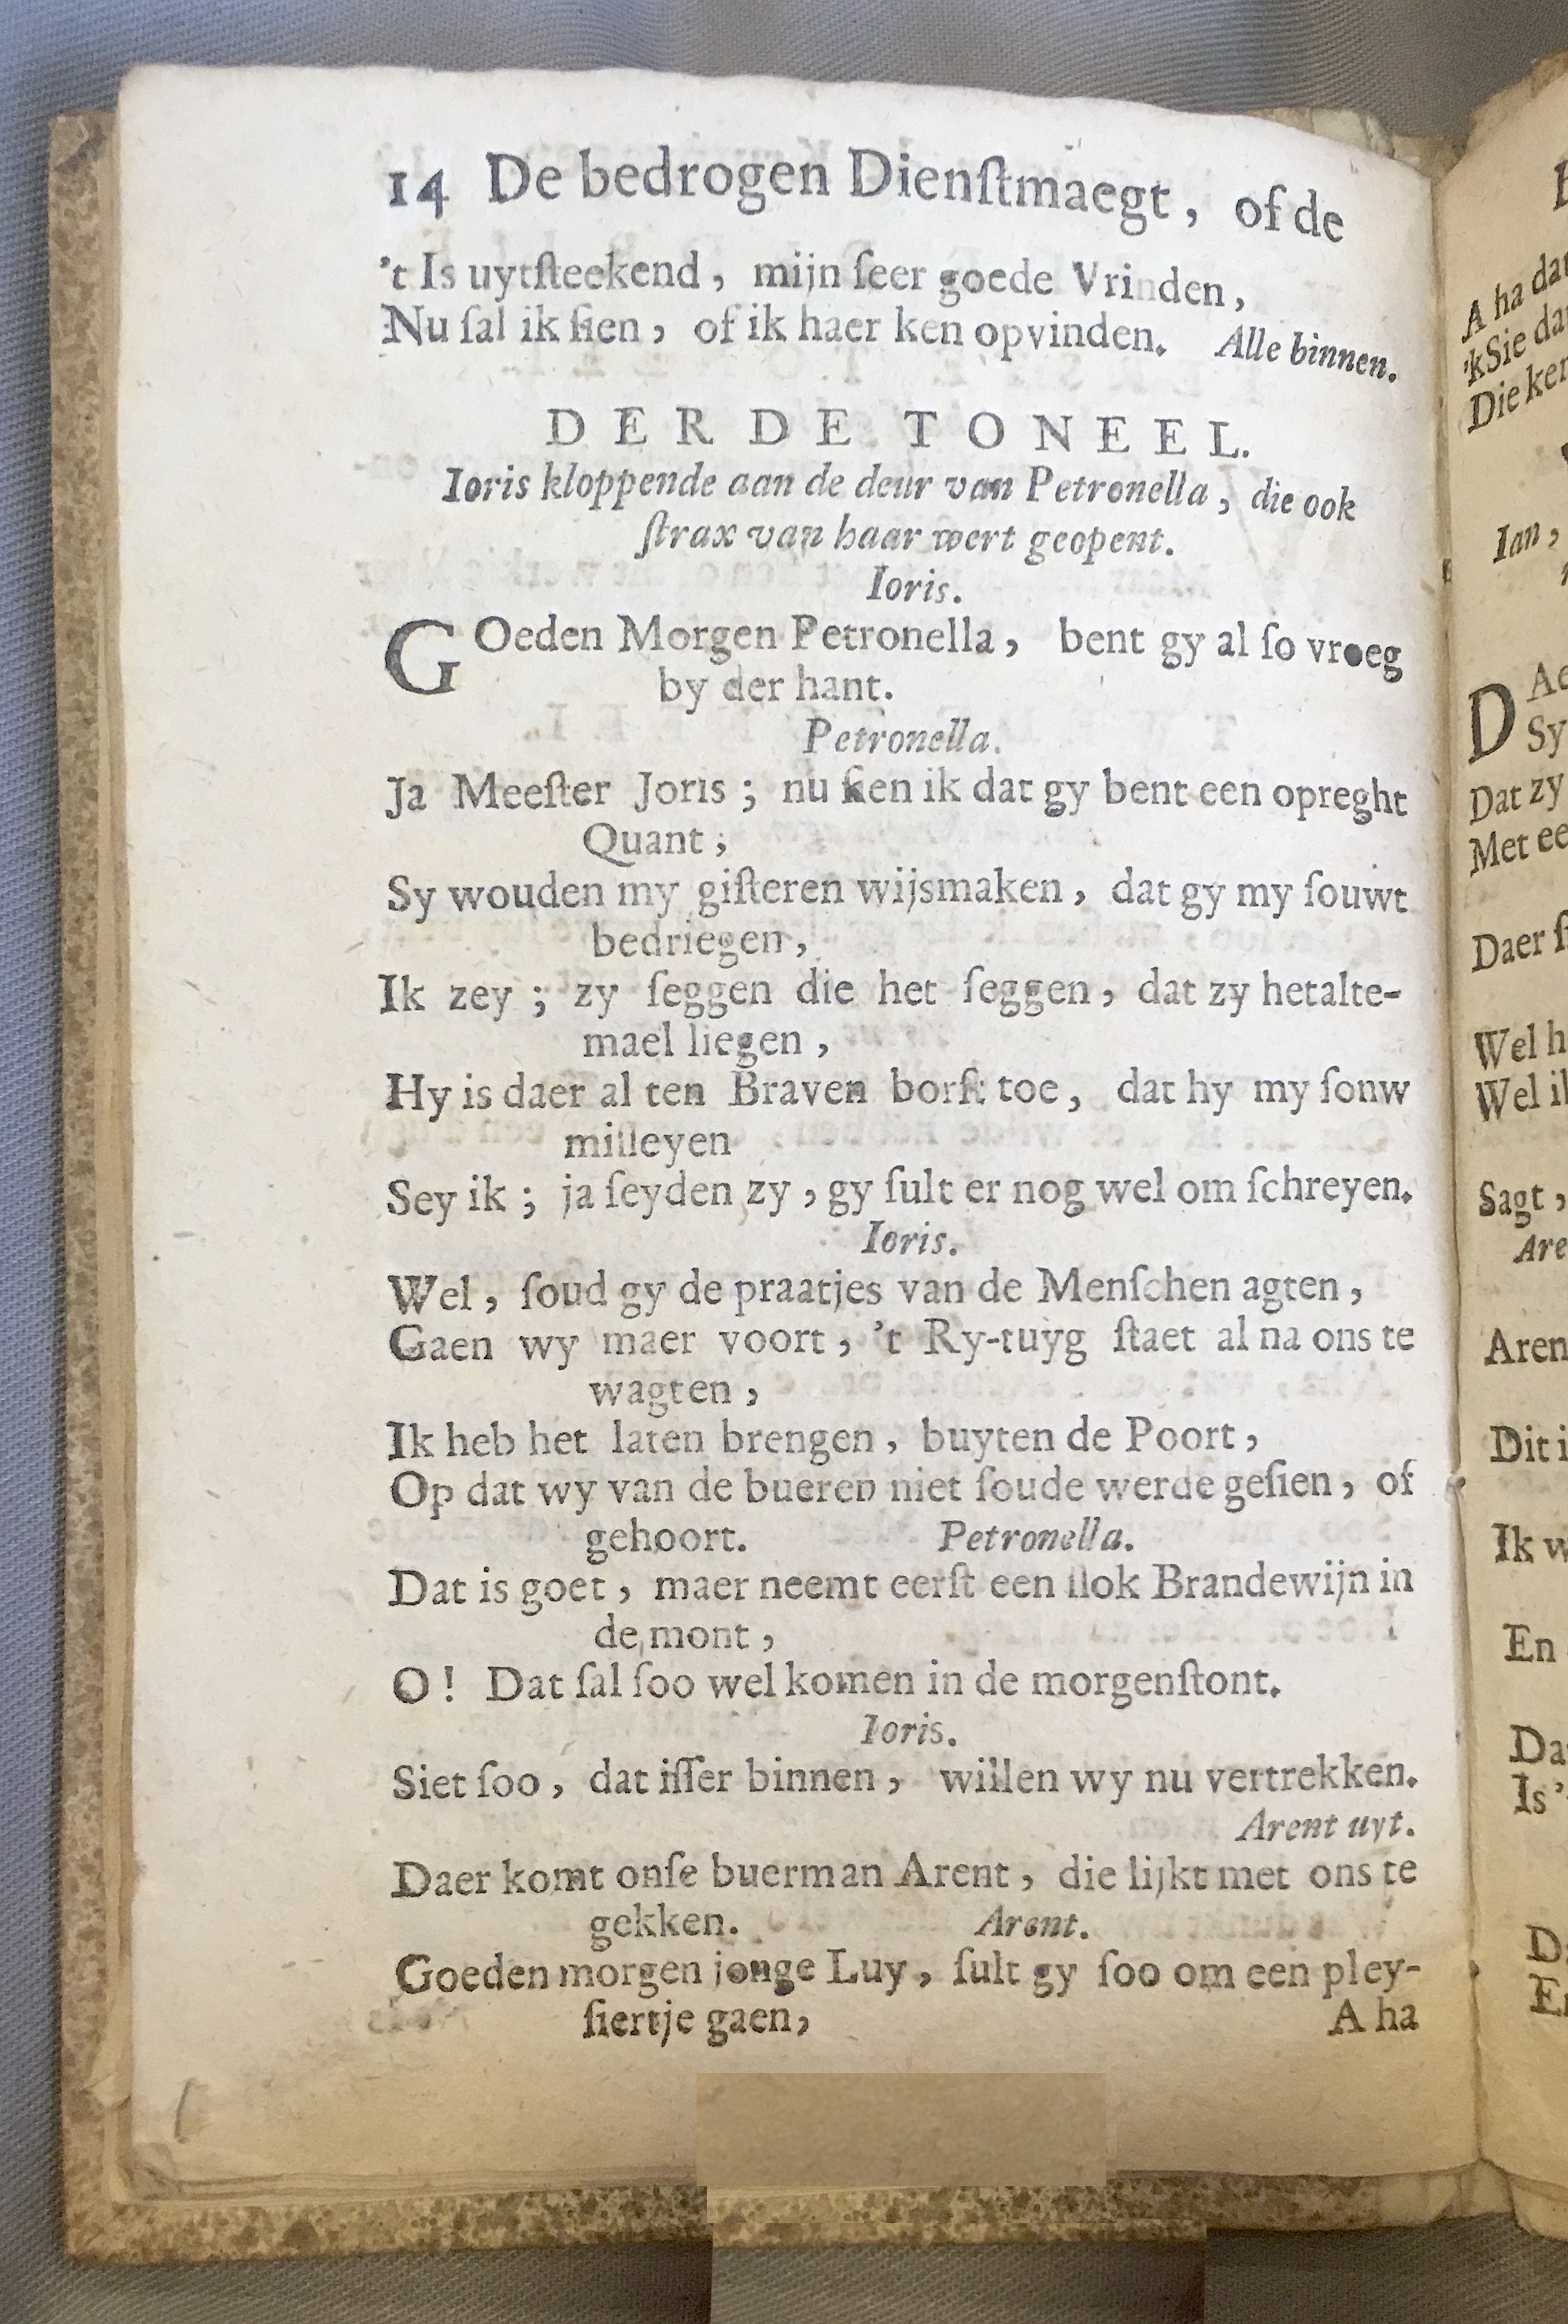 14 De bedrogen Dienſtmaegt, of de
't Is uytſteekend, mijn ſeer goede Vrinden,
Nu ſal ik ſien, of ik haer ken opvinden. Alle binnen.
DERDE TONEEL.
Ioris kloppende aan de deur van Petronella, die ook
ſtrax van haar wert geopent.
Ioris.
GOeden Morgen Petronella, bent gy al ſo vroeg
by der hant.
Petronella.
Ja Meeſter Joris; nu ſien ik dat gy bent een opreght
Quant;
Sy wouden my giſteren wijsmaken, dat gy my ſouwt
bedriegen,
Ik zey; zy ſeggen die het ſeggen, dat zy hetalte-
mael liegen,
Hy is daer al ten Braven borſt toe, dat hy my ſonw
milleyen
Sey ik; ja ſeyden zy, gy ſult er nog wel om ſchreyen.
Ioris.
Wel, ſoud gy de praatjes van de Menſchen agten,
Gaen wy maer voort, 't Ry-tuyg ſtaet al na ons te
wagten,
Ik heb het laten brengen, buyten de Poort,
Op dat wy van de bueren niet ſoude werde geſien, of
gehoort. Petronella.
Dat is goet, maer neemt eerſt een ſlok Brandewijn in
de mont,
O! Dat ſal ſoo wel komen in de morgenſtont.
Ioris.
Siet ſoo, dat iſſer binnen, willen wy nu vertrekken.
Arent uyt.
Daer komt onſe buerman Arent, die lijkt met ons te
gekken. Arent.
Goeden morgen jonge Luy, ſult gy ſoo om een pley-
ſiertje gaen,
A ha
A ha
'kSie
Die
Ian,
D
Sy
Dat zy
Met
Daer
Wel
Wel
Sagt,
Dit
Ik
En